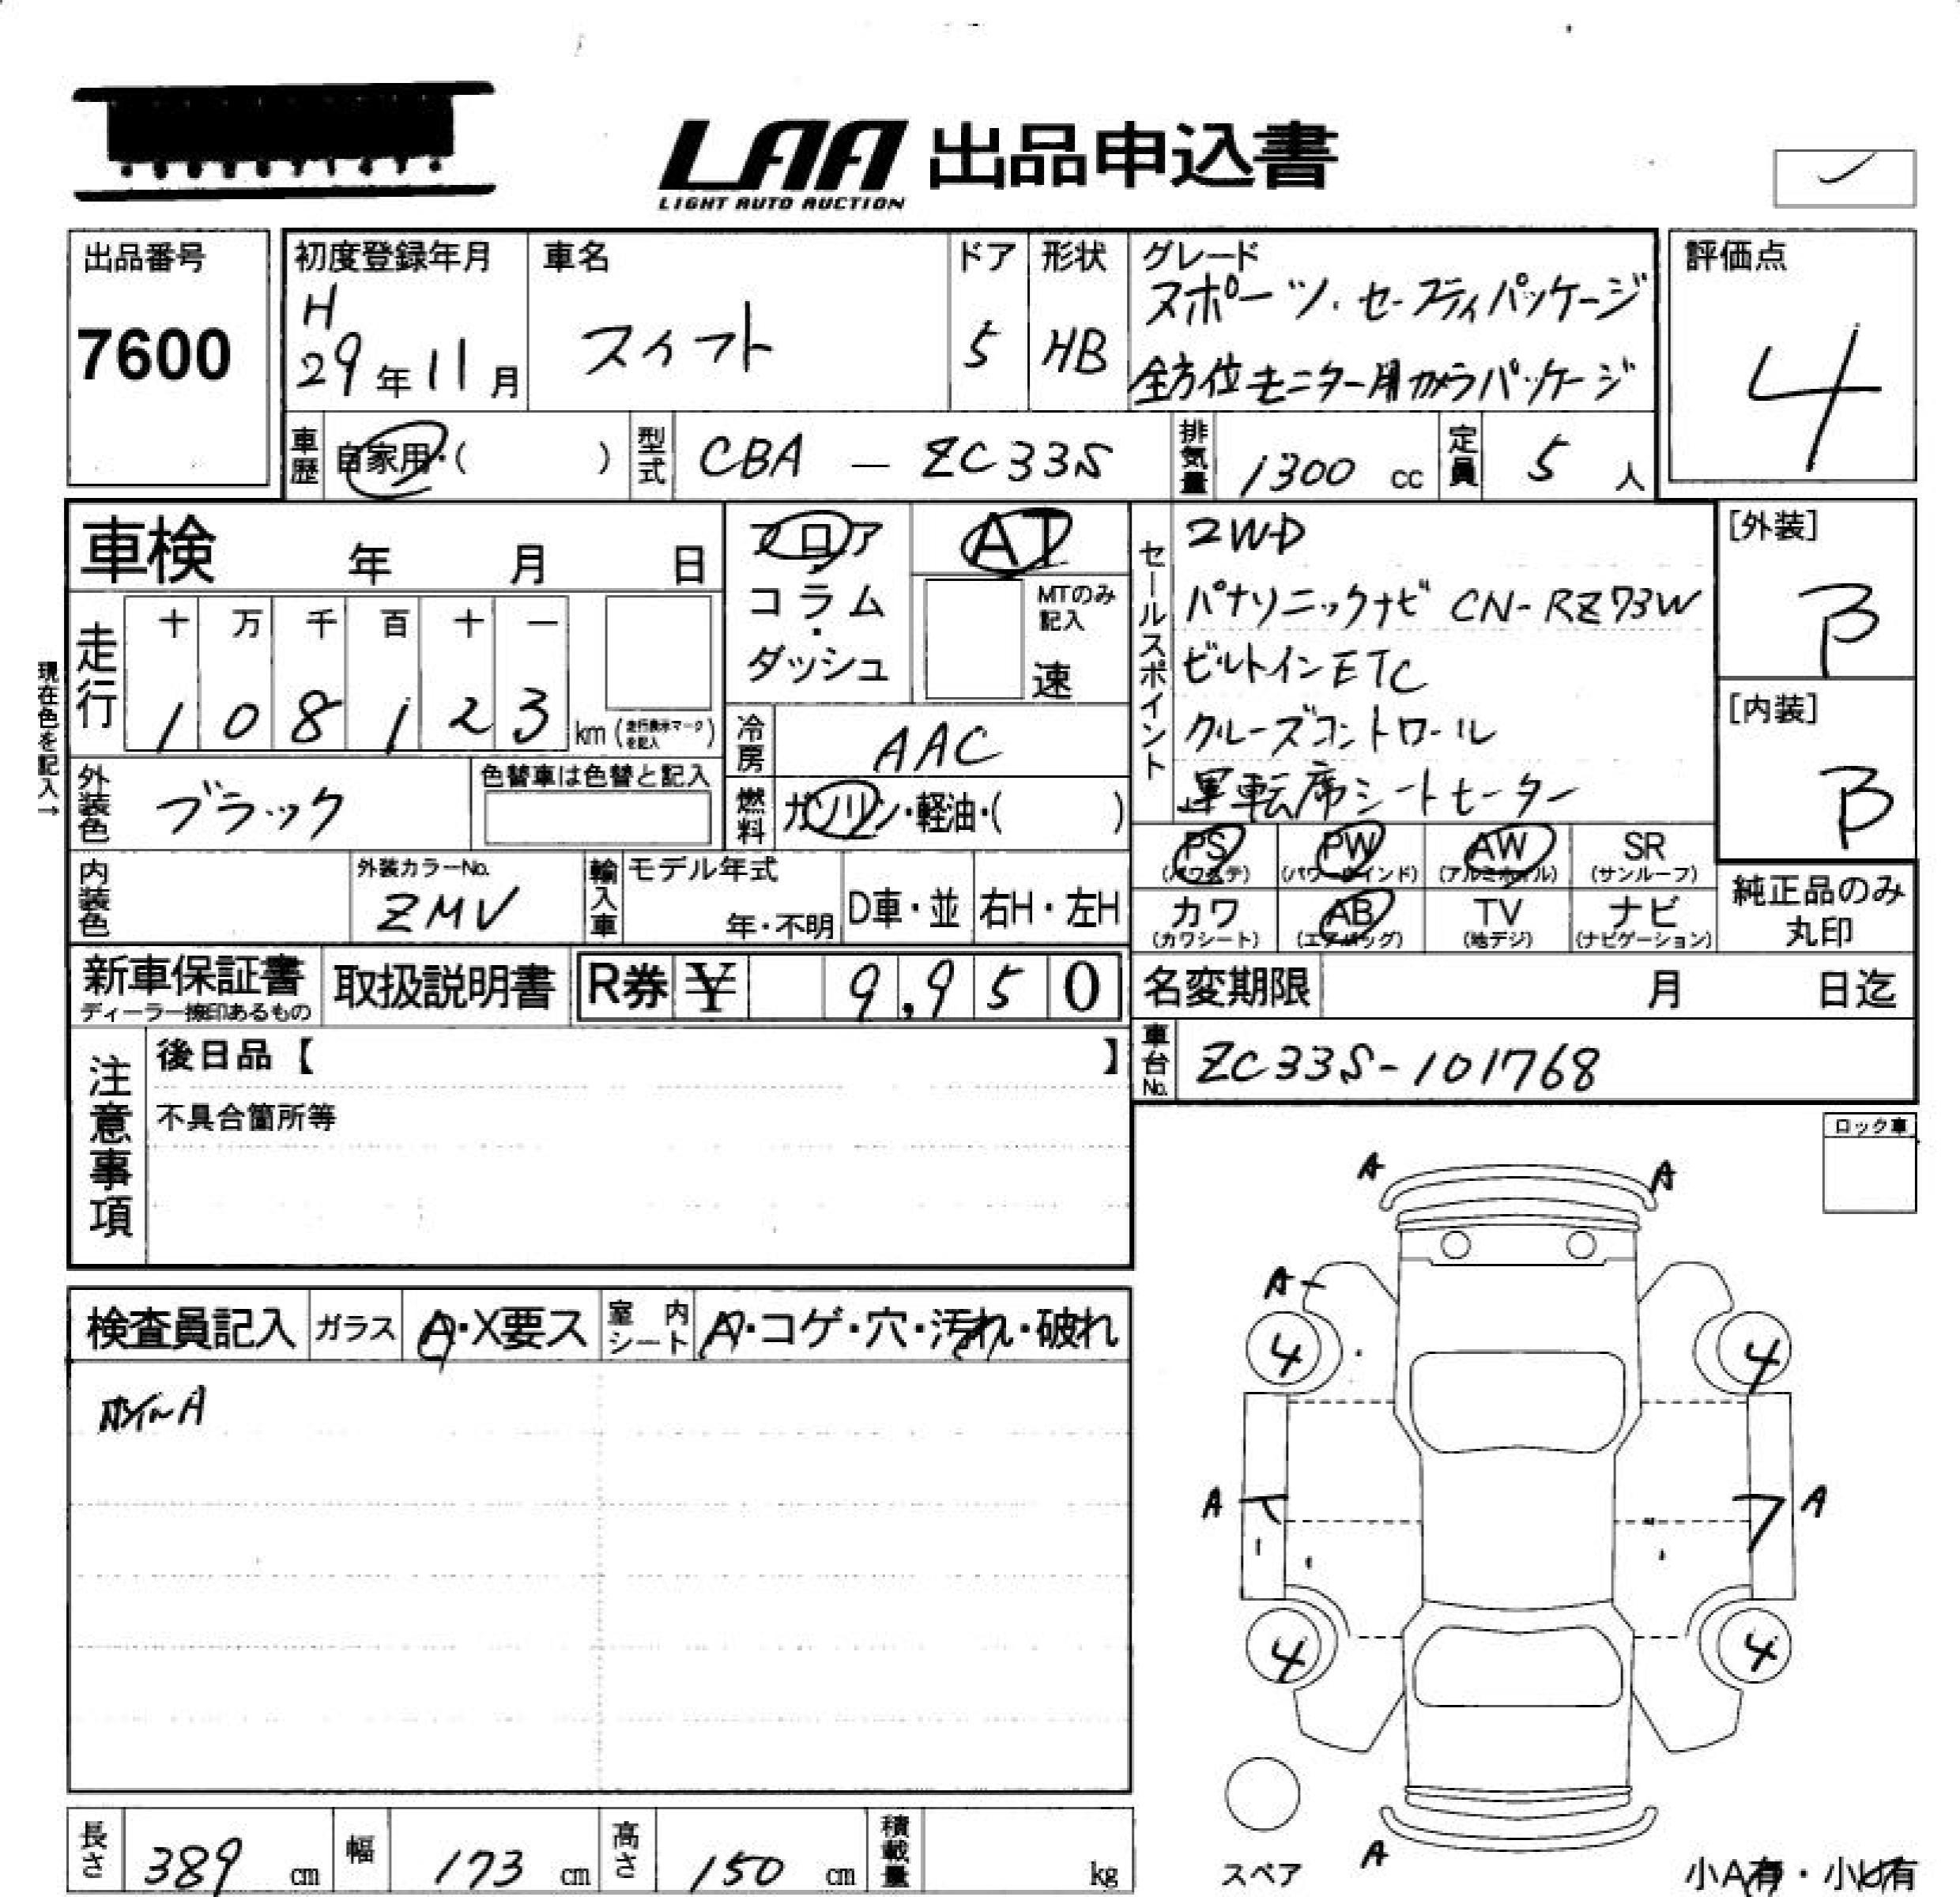 LAA 出品申込書
LIGHT AUTO AUCTION
出品番号
7600
初度登録年月
H
29年11月
車名
スイフト
ドア
5
形状
HB
グレード
スポーツ・セーフティパッケージ
全方位モニター用カメラパッケージ
評価点
4
車歴
自家用・( )
型式
CBA - ZC33S
排気量
1300 cc
定員
5 人
車検 年 月 日
フロア
コラム
・
ダッシュ
AT
MTのみ
記入
速
セールスポイント
2WD
パナソニックナビ CN-RZ73W
ビルトインETC
クルーズコントロール
運転席シートヒーター
[外装]
B
[内装]
B
現在色を記入→
走行
十 万 千 百 十 一
1 0 8 1 2 3 km (走行表示マークを記入)
冷房
AAC
外装色
ブラック
色替車は色替と記入
燃料
ガソリン・軽油・( )
PS (パワステ)
PW (パワーウインド)
AW (アルミホイル)
SR (サンルーフ)
内装色
外装カラーNo.
ZMV
輸入車
モデル年式
年・不明
D車・並
右H・左H
カワ (カワシート)
AB (エアバッグ)
TV (地デジ)
ナビ (ナビゲーション)
純正品のみ
丸印
新車保証書
ディーラー捺印あるもの
取扱説明書
R券 ¥ 9,950
名変期限 月 日迄
注意事項
後日品【 】
不具合箇所等
車台No.
ZC33S-101768
ロック車
A A
A
4 4
A A
4 4
A
検査員記入
ガラス
A・X要ス
室内シート
A・コゲ・穴・汚れ・破れ
長さ
389 cm
幅
173 cm
高さ
150 cm
積載量
kg
スペア
小A有・小U有